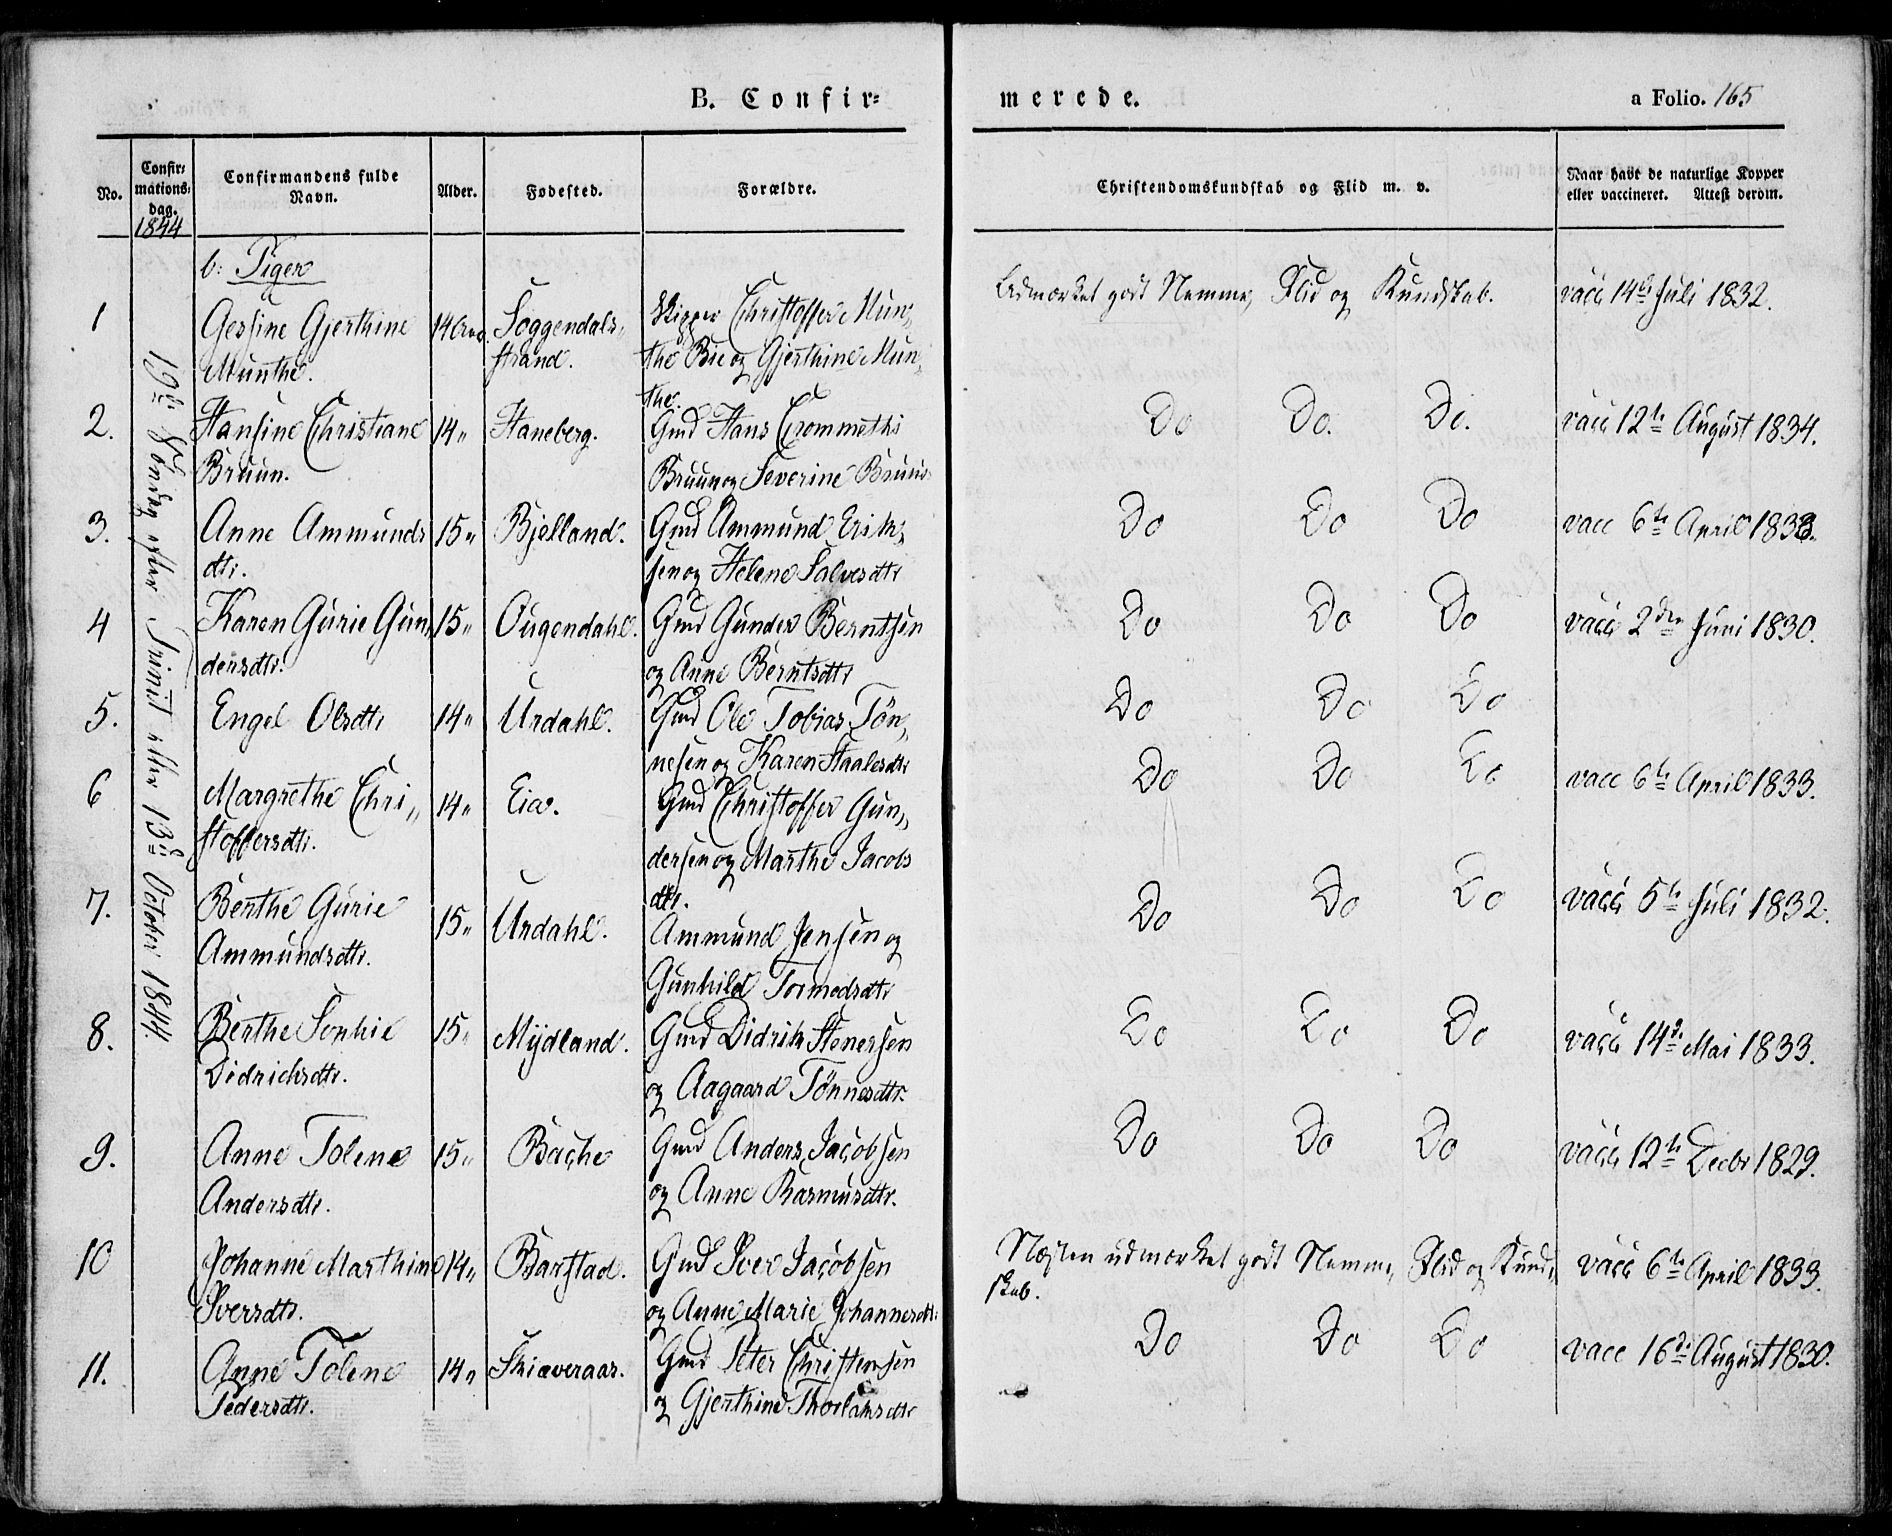 B. Confir=
merede.
a Folio. 165
No.
Confir=
mations=
dag.
1844
Confirmandens fulde
Navn.
Alder.
Fødested.
Forældre.
Christendomskundskab og Flid m. v.
Naar havt de naturlige Kopper
eller vaccineret. Attest derom.
19de Søndag efter Trinit eller 13de October 1844.
b: Piger
1 Gesine Gjerthine 14 Soggendals- Skipper Christoffer Mun- Udmærket godt Nemme, Flid og Kundskab. vacc 14de Juli 1832.
Munthe. strand. the Bie og Gjerthine Mun-
the.
2. Hansine Christiane 14" Haneberg. Gmd Hans Do Do. Do. vacc 12te August 1834.
Bruun. Bruun og Severine Bruun
3. Anne Ammunds 15" Bjelland. Gmd Ammund Erik- Do Do Do vacc 6te April 1833.
dtr. sen og Helene Salvesdtr
4 Karen Gurie Gun- 15" Ougendahl. Gmd Gunder Berntsen Do Do Do vacc 2den Juni 1830.
dersdtr. og Anne Berntsdtr
5. Engel Olsdtr 14" Urdahl. Gmd Ole Tobias Tøn- Do Do Do
nesen og Karen Staalesdtr
6 Margrethe Chri- 14" Eia. Gmd Christoffer Gun- Do Do Do vacc 6te April 1833.
stoffersdtr. dersen og Marthe Jacobs
dtr.
7. Berthe Gurie 15" Urdahl. Ammund Jensen og Do Do Do vacc 5te Juli 1832.
Ammundsdtr. Gunhild Tormodsdtr
8. Berthe Sophie 15" Mydland. Gmd Didrik Stenersen Do Do Do vacc 14de Mai 1833.
Didrichsdtr. og Aagaard Tønnesdtr.
9. Anne Tolene 15" Bache Gmd Anders Jacobsen Do Do Do vacc 12te Decbr 1829.
Andersdtr. og Anne Rasmusdtr.
10 Johanne Marthine 14" Barstad. Gmd Iver Jacobsen Næsten udmærket godt Nemme, Flid og Kund- vacc 6te April 1833.
Iversdtr. og Anne Marie Johannesdtr. skab.
11. Anne Tolene 14" Skiæveraas. Gmd Peter Christensen Do Do Do vacc 16de August 1830.
Pedersdtr. og Gjerthine Thorlaksdtr